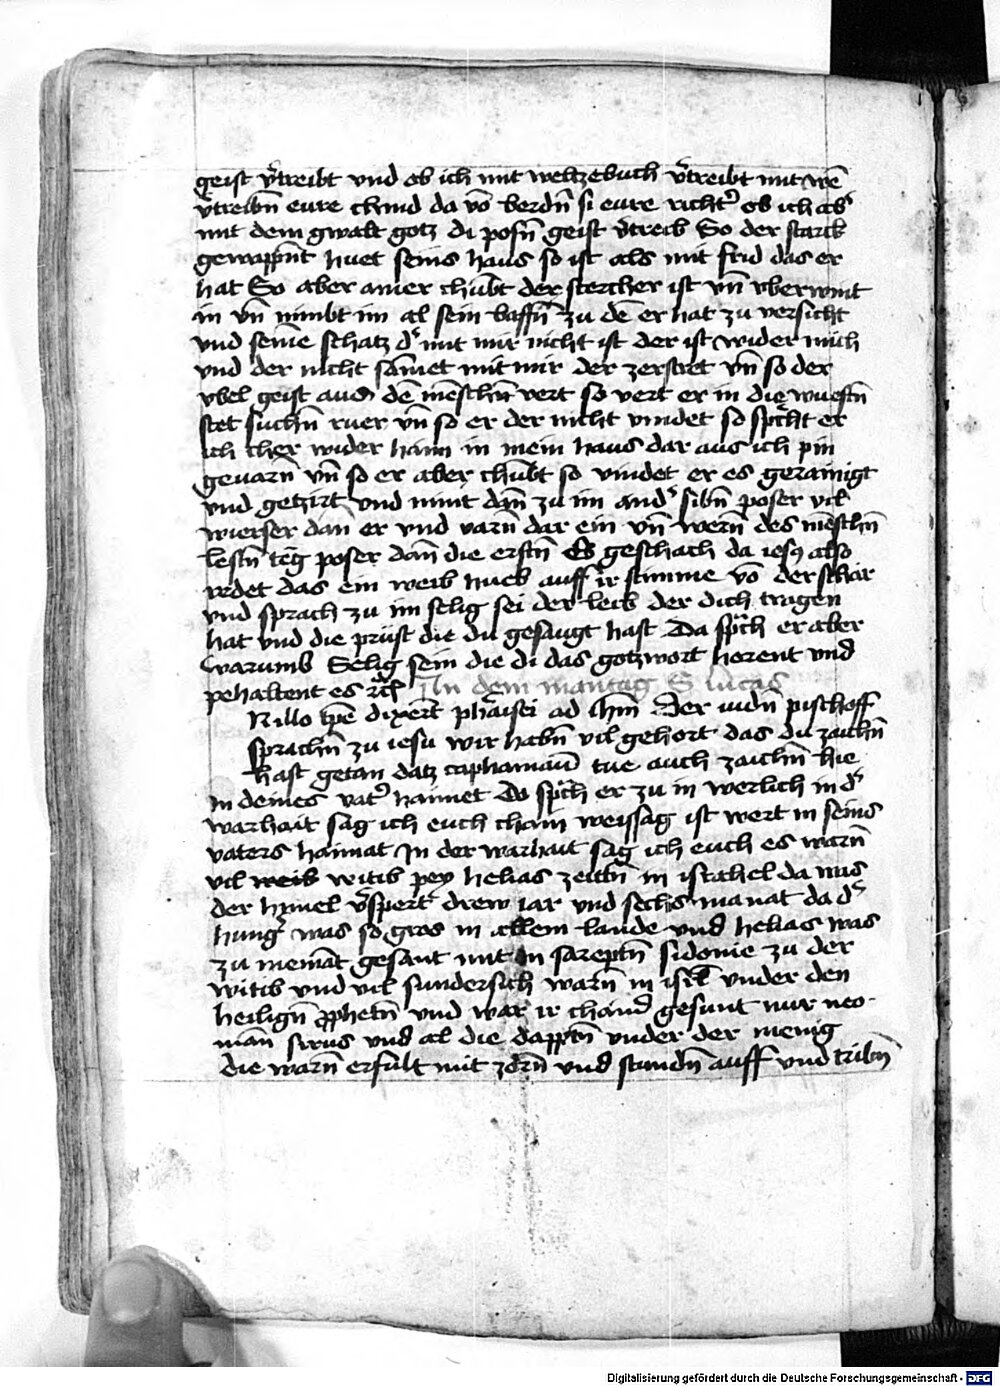 geist v̄treibt vnd ob ich mit weltzebuch v̄treibt mit wē
v̄treibn̄ eure chind da vō berdn̄ si eure richt' ob ich ab'
mit dem gwalt gotz di posn̄ geist v̄treib So der starck
gewappn̄t huet seins haus so ist als mit frid das er
hat So aber ainer chūbt der stercher ist vn̄ vberwint
in vn̄ nimbt im al sein baffn̄ zu dē er hat zu versicht
vnd seinē schatz d' mit mir nicht ist der ist wider mich
vnd der nicht sāmet mit mir der zerstret vn̄ so der
vbel geist aus dē mēschn̄ vert so vert er in die wuestn̄
stet suchn̄ ruer vn̄ so er der nicht vindet so sp'cht er
ich cher wider haim in mein haus dar aus ich pin
gevarn̄ vn̄ so er aber chūbt so vindet er es gerainigt
vnd getzirt vnd nimt dan̄ zu im and' sibn̄ poser vil
wierser dan̄ er vnd varn̄ dar ein vn̄ wern̄ des mēschn̄
lestn̄ tēg poser dan̄ die erstn̄ Es geschach da iesus also
redet das ein weib hueb auff ir stimme vō der schar
vnd sprach zu im selig sei der leib der dich tragen
hat vnd die prüst die du gesaugt hast Da sp'ch er aber
warumb Selig sein die di das gotzwort horent vnd
pehaltent es rc̄l In dem mantag S lucas
Nillo tpē dixert pharisei ad ihm̄ Der iudn̄ pischoff
sprachn̄ zu iesu wir habn̄ vil gehort das du zaichn̄
hast getan datz capharnaū tue auch zaichn̄ hie
in deines vat' haimet Do sp'ch er zu in werlich in d'
warhait sag ich euch chain weissag ist wert in seins
vaters haimat In der warhait sag ich euch es warn̄
vil weib witib pey helias zeitn̄ in israhel da was
der hymel v̄spert drew iar vnd sechs manat da d'
hung' was so gros in allem lande vnd helias was
zu niemāt gesant nur in sareptn̄ sidonie zu der
witib vnd vil sundersich warn̄ in isrl̄ vnder den
heilign̄ prophetn̄ vnd war ir chain' gesunt nur neo-
man̄ sirus vnd al die dapptn̄ vnder der menig
die warn̄ erfult mit zorn̄ vnd stundn̄ auff vnd tribn̄
Digitalisierung gefördert durch die Deutsche Forschungsgemeinschaft - DFG